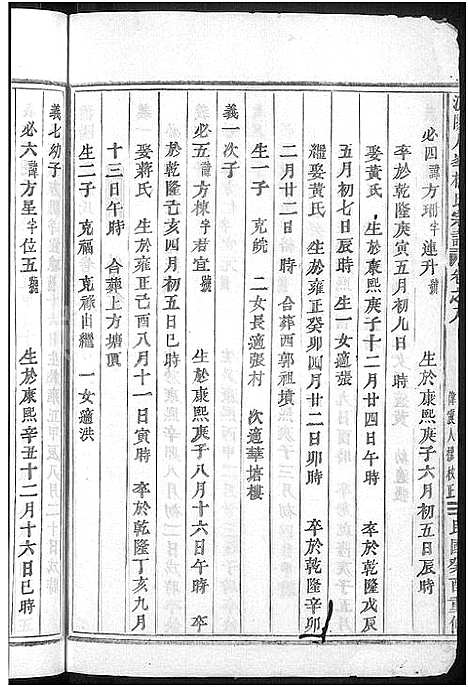 氏宗譜 卷之八 民國癸酉重修
必四 諱方珊 字連升 號 生於康熙庚子六月初五日辰時
卒於乾隆庚寅五月初九日 時
娶黃氏 生於康熙庚子十二月廿四日午時 卒於乾隆戊辰
五月初七日辰時 生一女適張
繼娶黃氏 生於雍正癸卯四月廿二日卯時 卒於乾隆辛卯
二月廿二日 時 合葬西郭祖墳
生一子 克皖 二女長適張村 次適華塔樓
義一次子
必五 諱方棟 字君宜 號 生於康熙庚子八月十六日午時 卒
於乾隆己亥四月初五日亥時
娶蔣氏 生於雍正己酉八月十一日寅時 卒於乾隆丁亥九月
十三日午時 合葬上方塘頂
生二子 克福 克祿出繼 一女適洪
義七幼子
必六 諱方星 字位五 號 生於康熙辛丑十二月十六日巳時